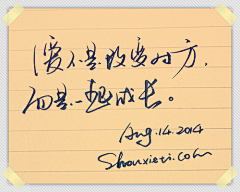 爱不是改变对方，
而是一起成长。
Aug.14.2014
Shouxieti.com